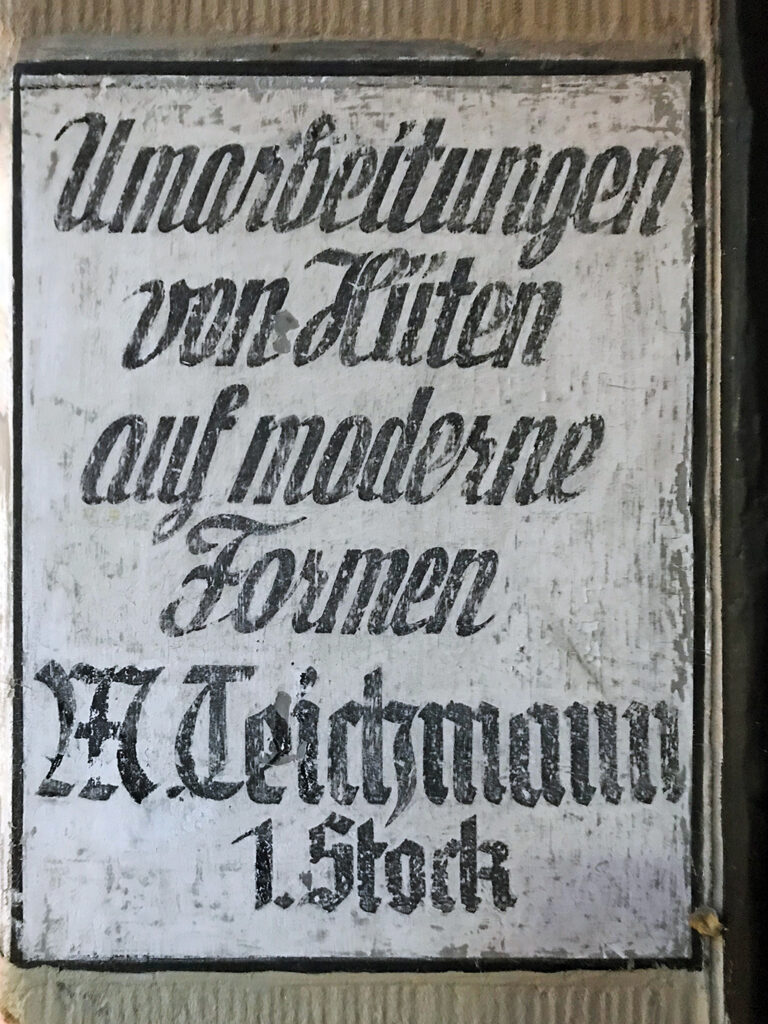 Umarbeitungen
von Hüten
auf moderne
Formen
M. Teichmann
1. Stock